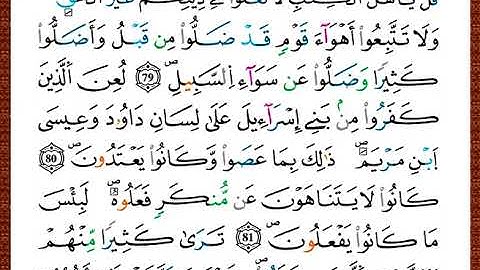 قُلْ يَٰٓأَهْلَ اَ۬لْكِتَٰبِ لَا تَغْلُواْ فِے دِينِكُمْ غَيْرَ اَ۬لْحَقِّ
وَلَا تَتَّبِعُوٓاْ أَهْوَآءَ قَوْمٖ قَدْ ضَلُّواْ مِن قَبْلُ وَأَضَلُّواْ
كَثِيراٗ وَضَلُّواْ عَن سَوَآءِ اِ۬لسَّبِيلِۖ 79 لُعِنَ اَ۬لذِينَ
كَفَرُواْ مِنۢ بَنِےٓ إِسْرَآءِيلَ عَلَىٰ لِسَانِ دَاوُۥدَ وَعِيسَى
اَ۪بْنِ مَرْيَمَۖ ذَٰلِكَ بِمَا عَصَواْ وَّكَانُواْ يَعْتَدُونَۖ 80
كَانُواْ لَا يَتَنَاهَوْنَ عَن مُّنكَرٖ فَعَلُوهُۖ لَبِئْسَ
مَا كَانُواْ يَفْعَلُونَۖ 81 تَرَىٰ كَثِيراٗ مِّنْهُمْ